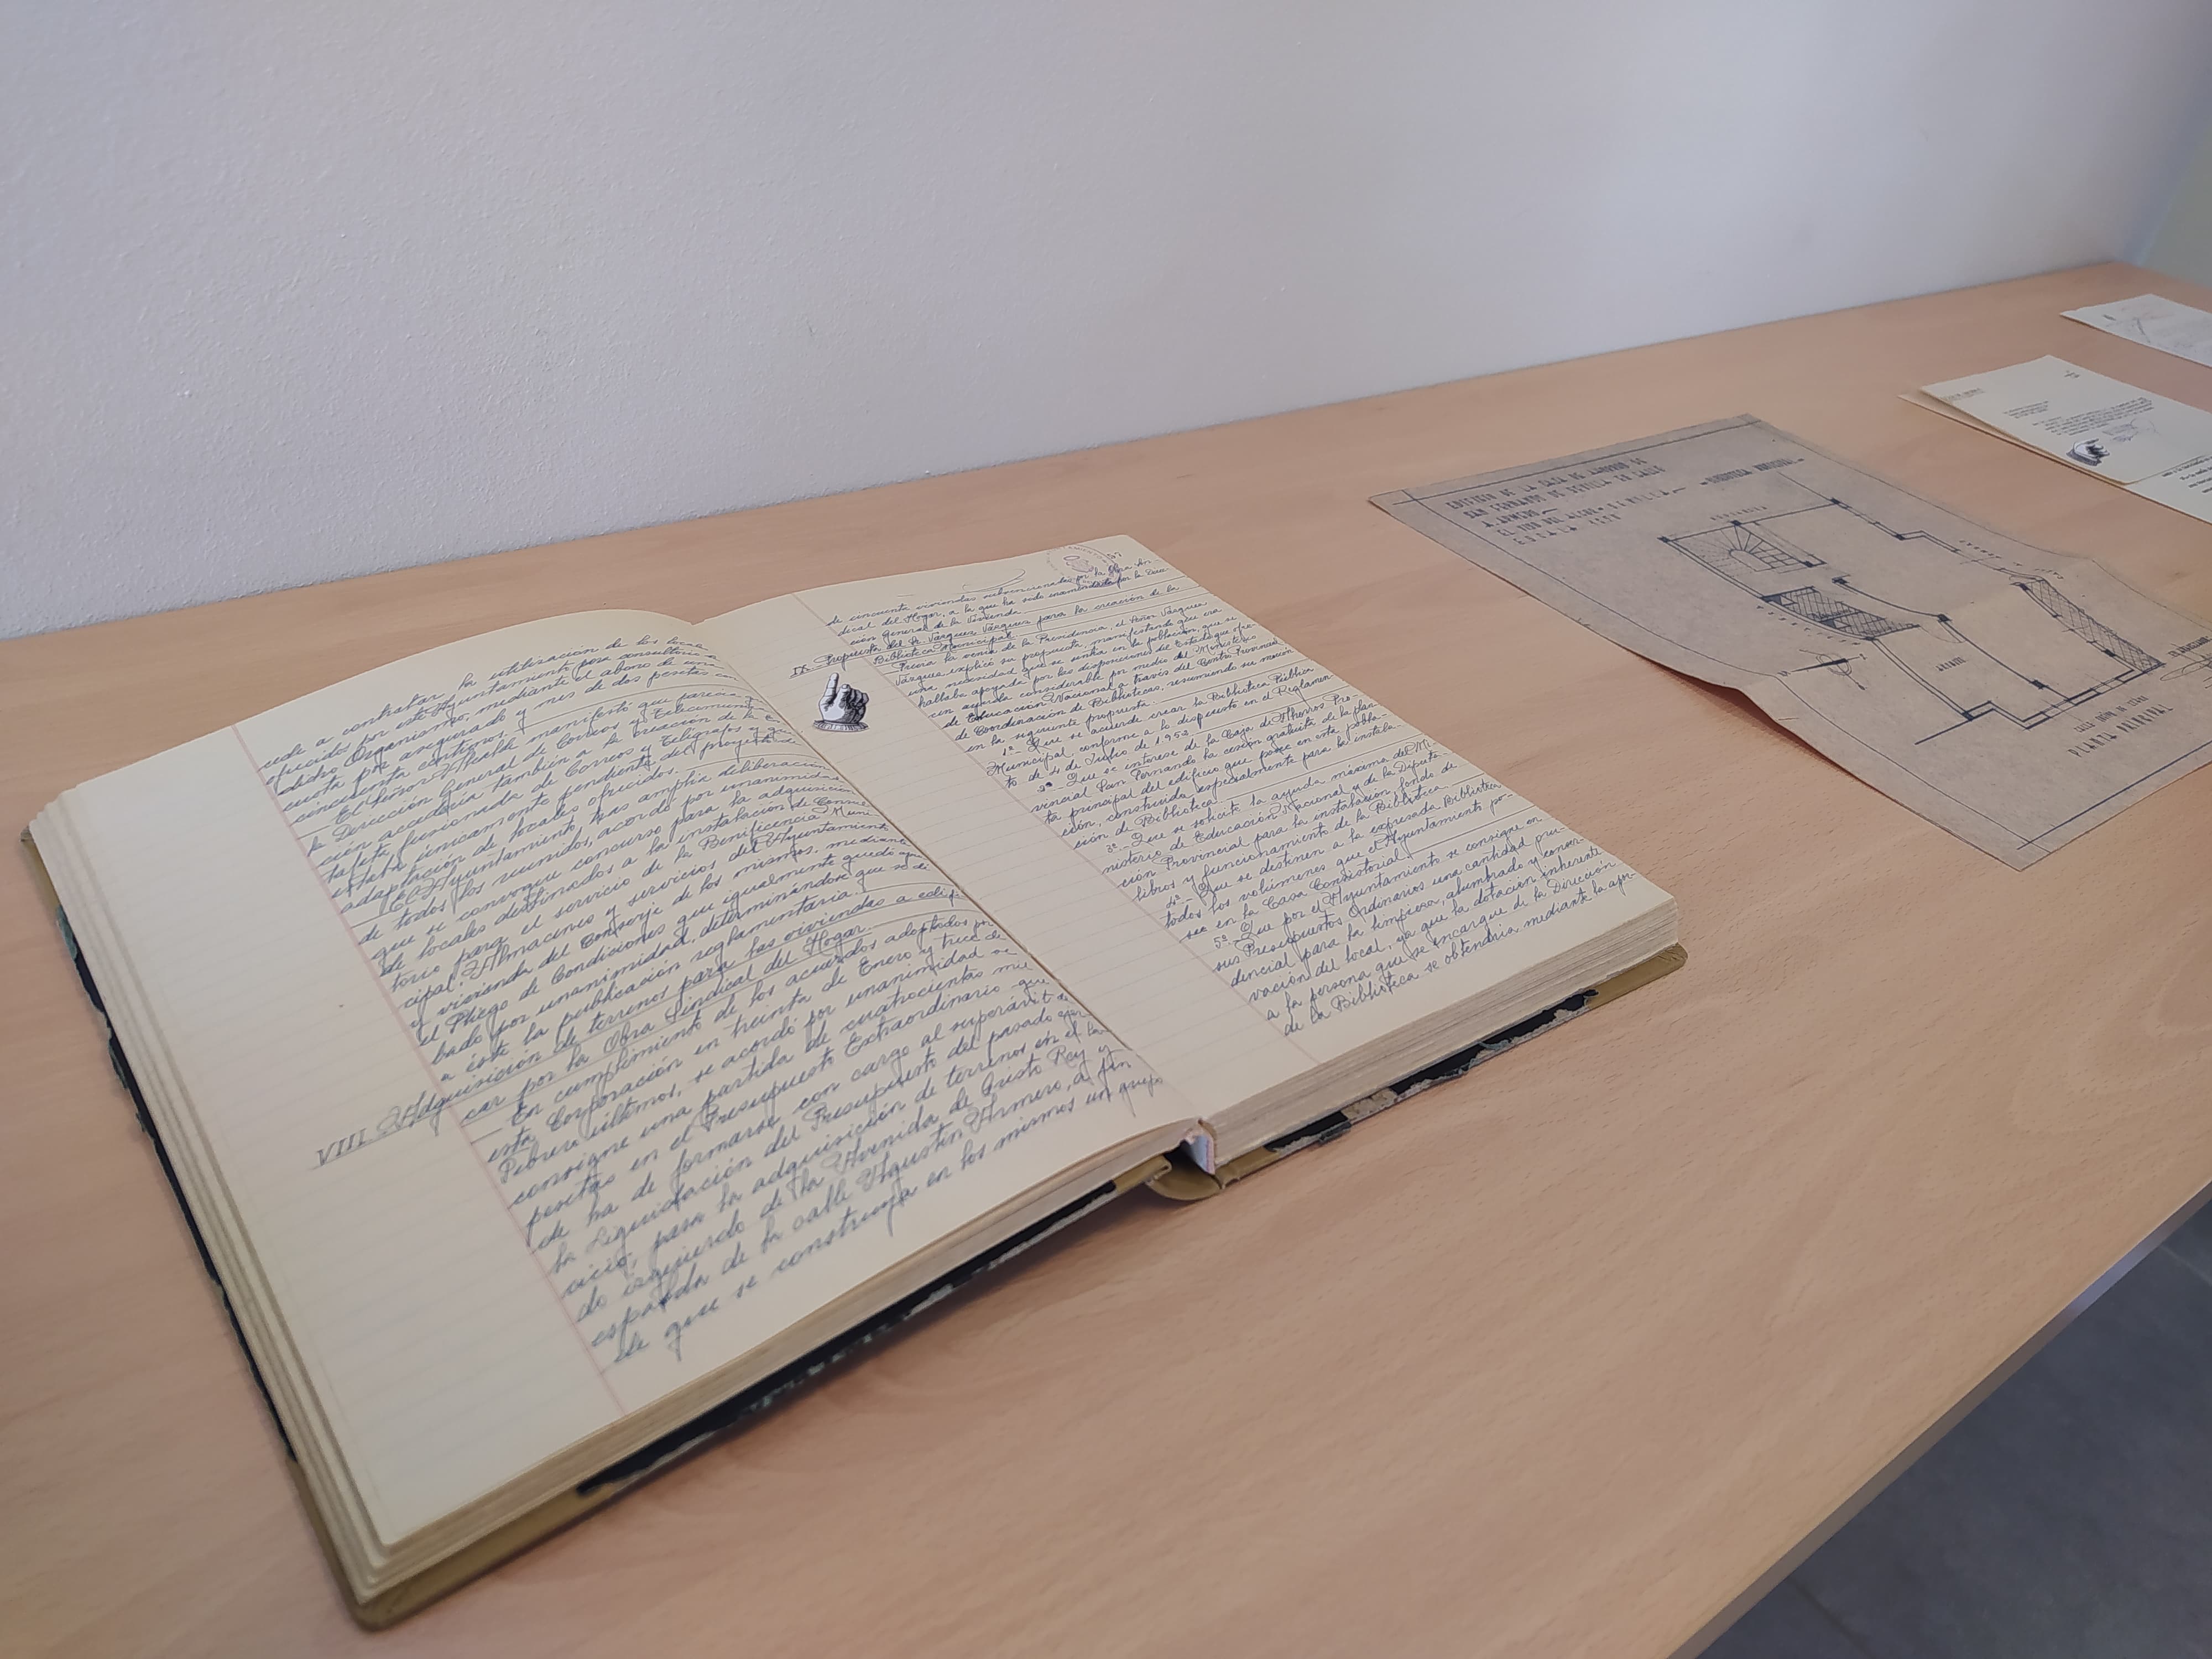 ede a contratar la utilización de los loca-
ofrecidos por este Ayuntamiento para consultorio
debido Organismo, mediante el abono de una
cuota por asegurado y mes de dos pesetas con
cincuenta céntimos.
El Señor Alcalde manifestó que parecía
la Dirección General de Correos y Telecomuni
ción accedería también a la creación de la E
tafeta fusionada de Correos y Telégrafos y que
estaba únicamente pendiente del proyecto de
adaptación de locales ofrecidos.
El Ayuntamiento, tras amplia deliberación
de todos los reunidos, acordó por unanimidad
que se convoque concurso para la adquisición
de locales destinados a la instalación de
torio para el servicio de la Beneficencia Muni
cipal, Almacenes y servicios del Ayuntamiento
y vivienda del Conserje de los mismos, mediante
el Pliego de Condiciones que igualmente quedó apro
bado por unanimidad, determinándose que se dé
a éste la publicación reglamentaria.
VIII. Adquisición de terrenos para las viviendas a edifi
car por la Obra Sindical del Hogar.
En cumplimiento de los acuerdos adoptados por
esta Corporación en treinta de Enero y trece de
Febrero últimos, se acordó por unanimidad se
consigne una partida de cuatrocientas mil
pesetas en el Presupuesto Extraordinario que
de ha de formarse con cargo al superávit de
la Liquidación del Presupuesto del pasado ejer
cicio, para la adquisición de terrenos en el la
do izquierdo de la Avenida de Cristo Rey y
espalda de la calle Agustín Armero, a fin
de que se construya en los mismos un grupo
97
de cincuenta viviendas subvencionadas por la Obra Sin
dical del Hogar, a la que ha sido encomendada por la Direc
ción General de la Vivienda.
IX. Propuesta del Sr. Vázquez Vázquez para la creación de la
Biblioteca Municipal.
Previa la venia de la Presidencia, el Señor Vázquez
Vázquez explicó su propuesta, manifestando que era
una necesidad que se sentía en la población, que se
hallaba apoyada por las disposiciones del Estado que ofre-
cen ayuda considerable por medio del Ministerio
de Educación Nacional a través del Centro Provincial
de Coordinación de Bibliotecas, resumiendo su moción
en la siguiente propuesta.
1º. Que se acuerde crear la Biblioteca Pública
Municipal, conforme a lo dispuesto en el Reglamen
to de 4 de Julio de 1952.
2º. Que se interese de la Caja de Ahorros Pro-
vincial San Fernando la cesión gratuita de la plan
ta principal del edificio que posee en esta pobla-
ción, construída especialmente para la instala
ción de Biblioteca.
3º. Que se solicite la ayuda máxima del Mi-
nisterio de Educación Nacional y de la Diputa-
ción Provincial para la instalación, fondo de
libros y funcionamiento de la Biblioteca.
4º. Que se destinen a la expresada Biblioteca
todos los volúmenes que el Ayuntamiento po-
see en la Casa Consistorial.
5º. Que por el Ayuntamiento se consigne en
sus Presupuestos Ordinarios una cantidad pru-
dencial para la limpieza, alumbrado y conser-
vación del local, ya que la dotación inherente
a la persona que se encargue de la Dirección
de la Biblioteca se obtendría mediante la apr-
EDIFICIO DE LA CAJA DE AHORROS DE
SAN FERNANDO DE SEVILLA EN CALLE
A. ARMERO
EL VISO DEL ALCOR - SEVILLA
ESCALA
BIBLIOTECA MUNICIPAL
PLANTA PRINCIPAL